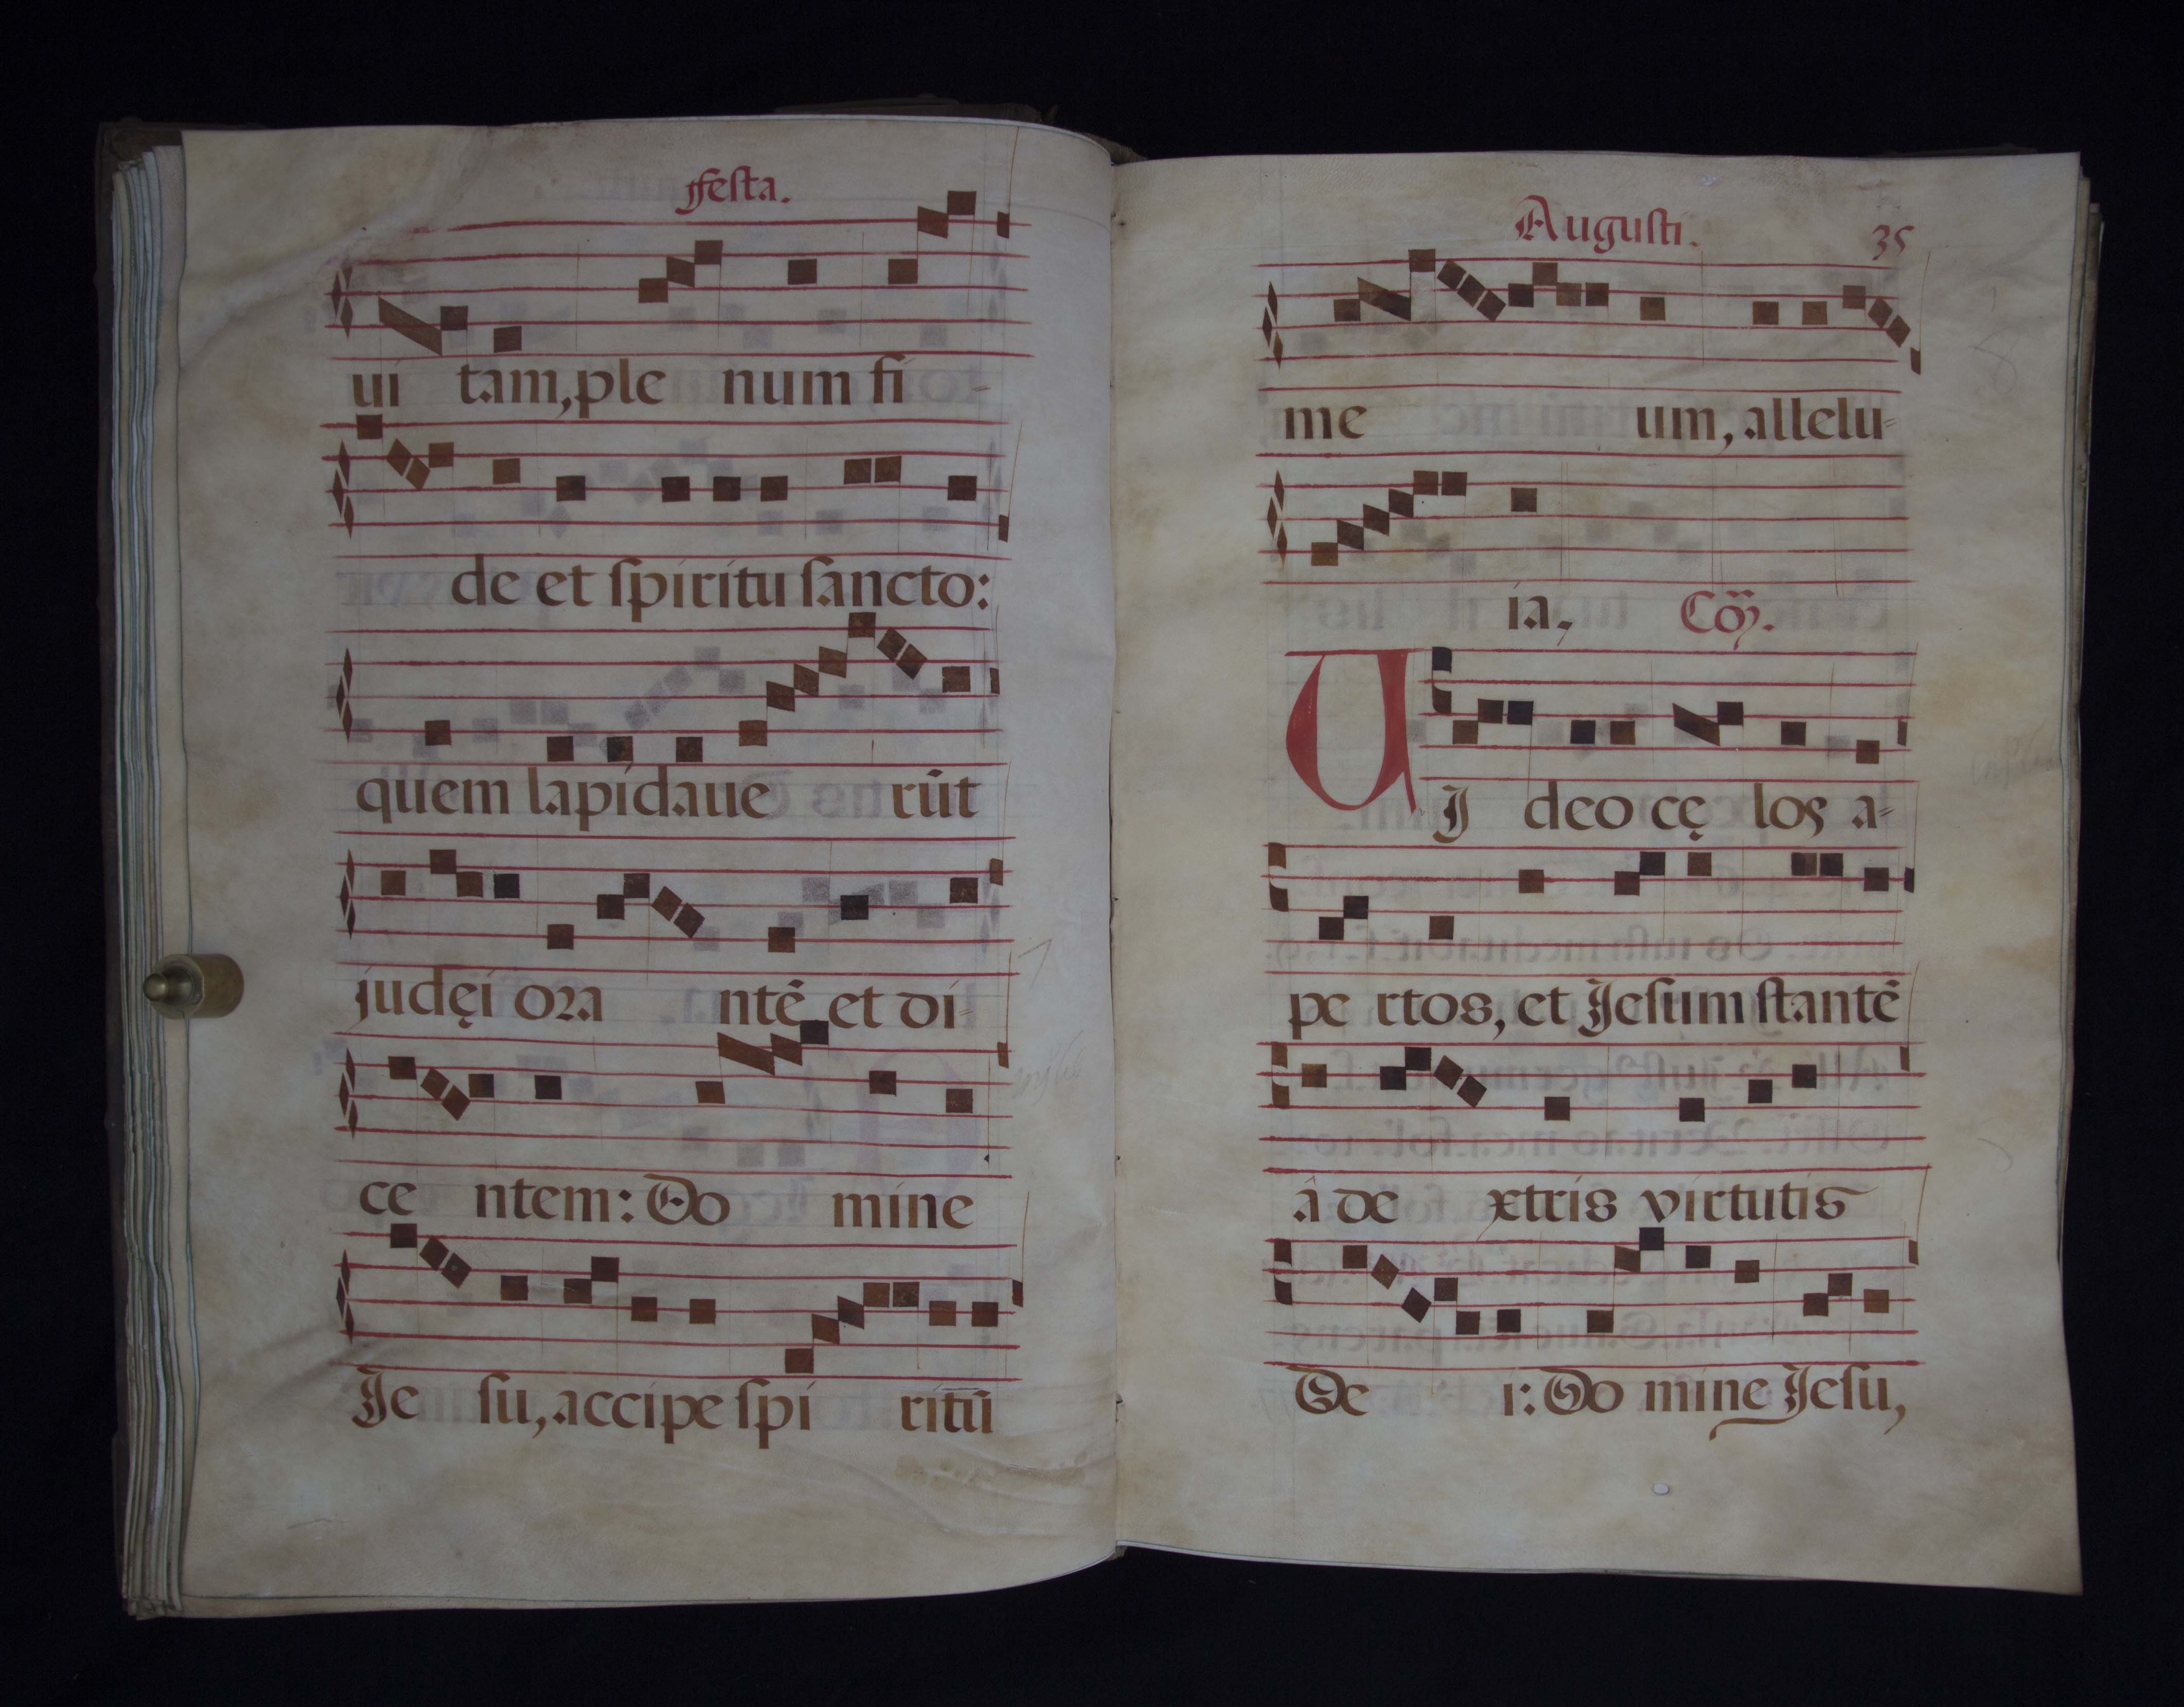 Festa.
ui tam, ple num fi -
de et spiritu sancto:
quem lapidaue rūt
judęi ora ntē et di-
ce ntem: Do mine
Je su, accipe spi ritū
Augusti. 35
me um, allelu-
ia, Cōȷ.
VJ deo cę los a-
pe rtos, et Jesum stantē
â de xtris virtutis
De i: Do mine Jesu,